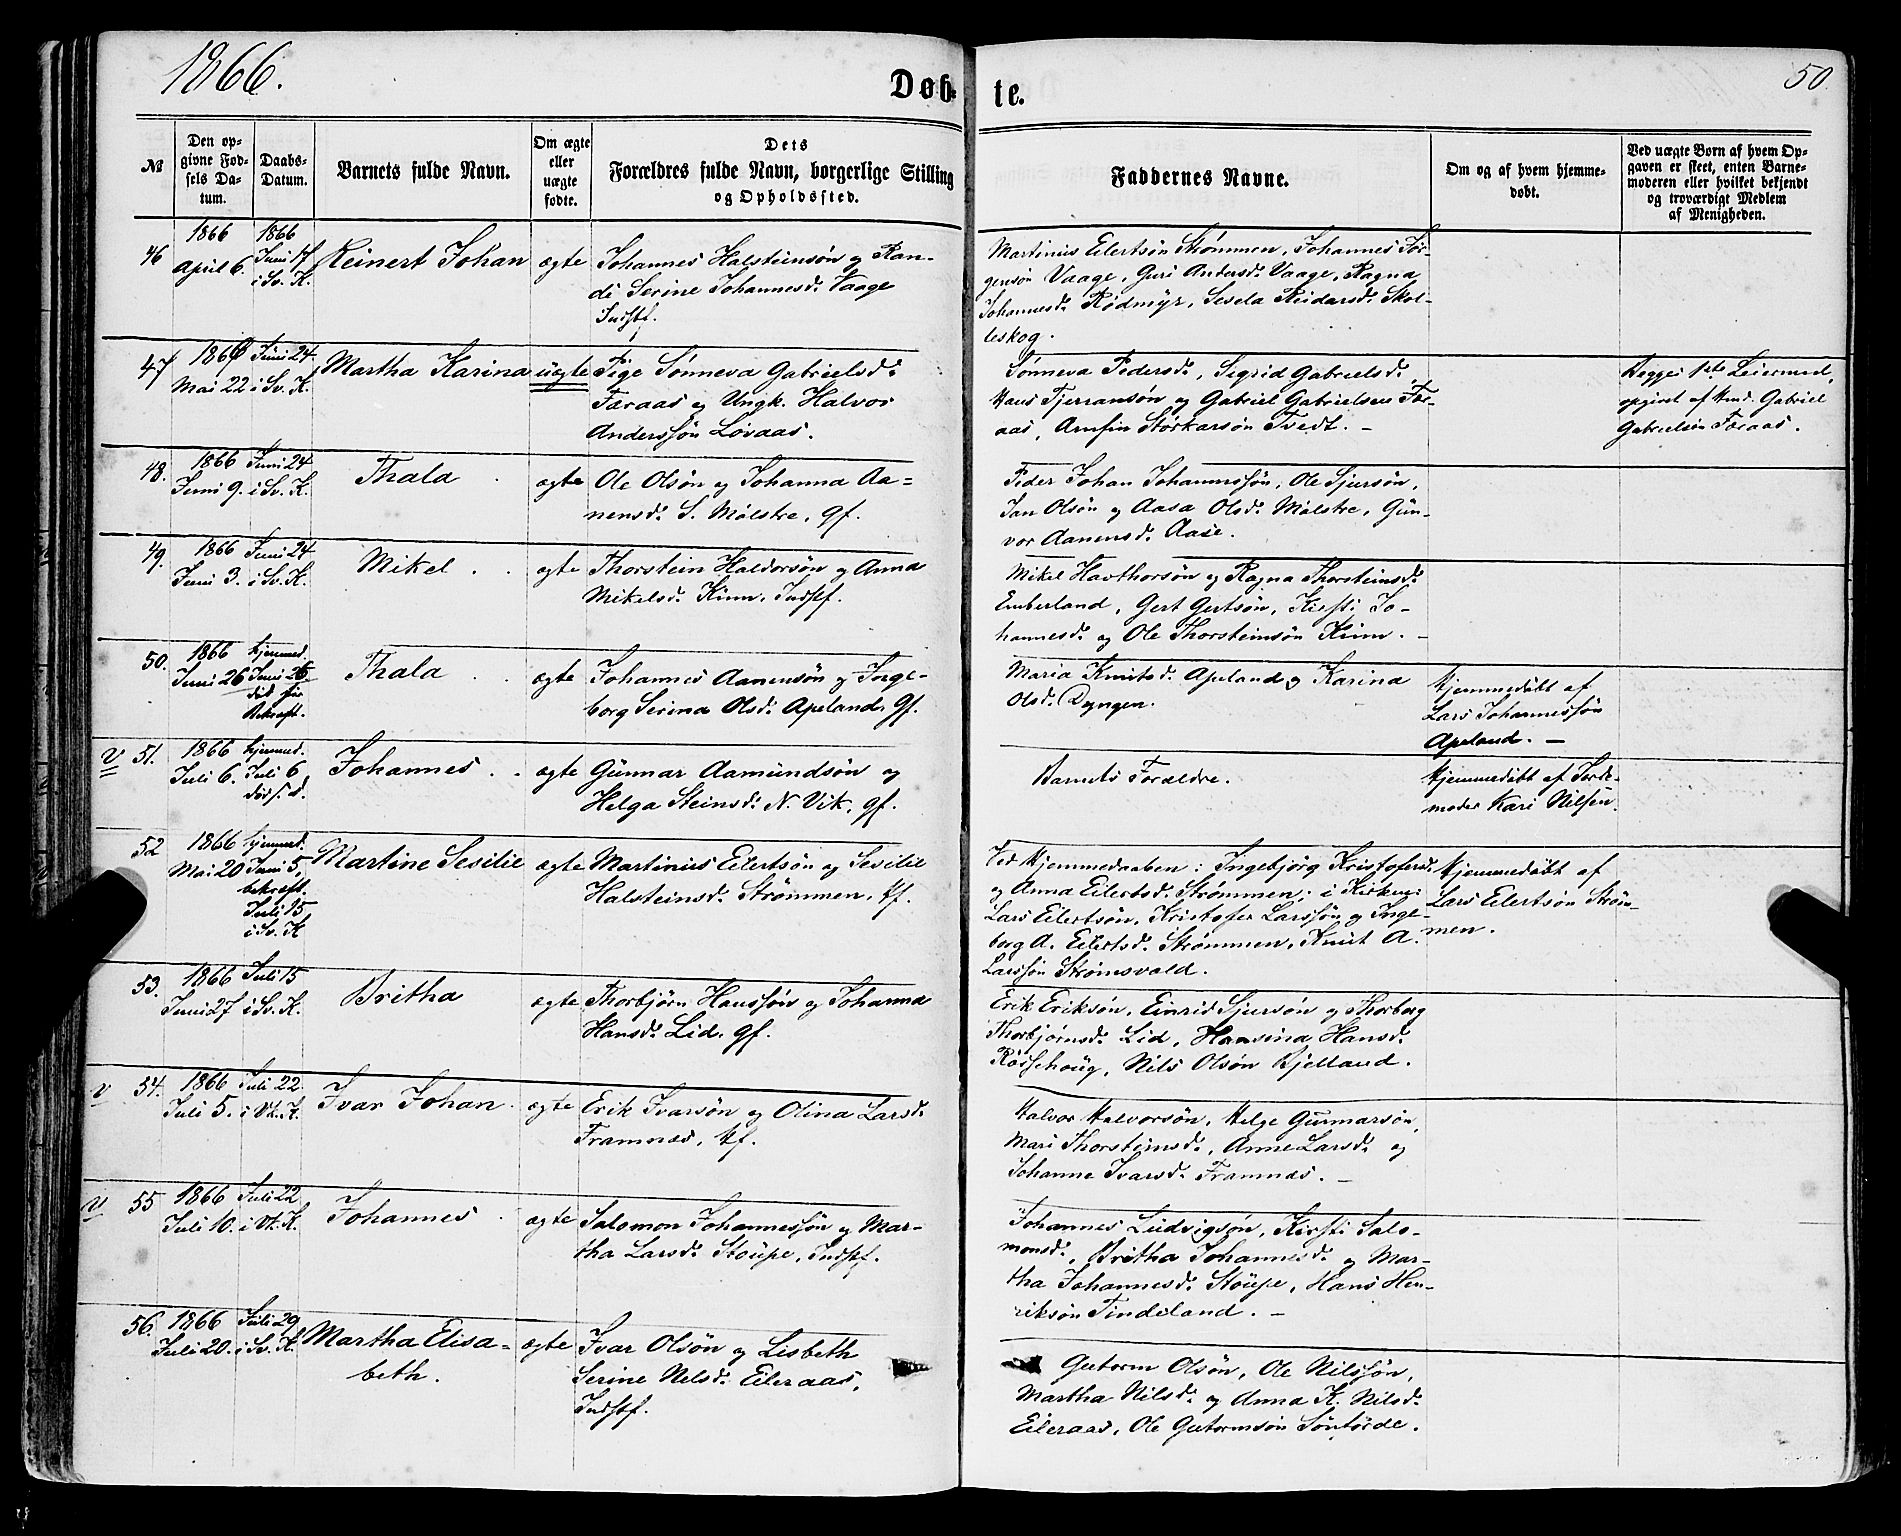 1866.
Døb-
te.
50
№
Den op-
givne Fød-
sels Da-
tum.
Daabs-
Datum.
Barnets fulde Navn.
Om ægte
eller
uægte
fødte.
Dets
Forældres fulde Navn, borgerlige Stilling
og Opholdssted.
Faddernes Navne.
Om og af hvem hjemme-
døbt.
Ved uægte Børn af hvem Op-
gaven er skeet, enten Barne-
moderen eller hvilket bekjendt
og troværdigt Medlem
af Menigheden.
46
1866
April 6.
1866
Juni 17
i Sv. K.
Reinert Johan
ægte
Johannes Halsteinsøn og Ran-
di Serine Johannesd. Vaage
Indstf.
Martinius Eilertsøn Strømmen, Johannes Jør-
gensøn Vaage, Guri Andersd. Vaage, Ragna
Johannesd. Rødmyr, Sesela Reidarsd. Skol-
leskog.
47
1866
Mai 22
Juni 24.
i Sv. K.
Martha Karina
uægte
Pige Sønneva Gabrielsd.
Færaas og Ungk. Halvor
Anderssøn Løvaas.
Sønneva Pedersd., Sigrid Gabrielsd.
Hans Tjerransøn og Gabriel Gabrielsen Fær-
aas, Arnfin Storkarsøn Tvedt. -
Begges 1ste Leiermaal,
opgivet af Gabriel
Gabrielsen Færaas.
48.
1866
Juni 9.
Juni 24
i Sv. K.
Thala
ægte
Ole Olsøn og Johanna Aa-
nensd. S. Mølstre, gf.
Peder Johan Johannessøn, Ole Sjursøn,
Jan Olsøn og Aasa Olsd. Mølstre, Gun-
vor Aanensd. Aase.
49.
1866
Juni 3.
Juni 24
i Sv. K.
Mikel
ægte
Thorstein Haldorsøn og Anna
Mikelsd. Kinn, Indstf.
Mikel Havthorsøn og Ragna Thorsteinsd.
Emberland, Gert Gertsøn, Kirsti Jo-
hannesd. og Ole Thorsteinsøn Kinn. -
50.
1866
Juni 26
hjemmed.
Juni 26
død før
Bekræft.
Thala
ægte
Johannes Aanensøn og Inge-
borg Serina Olsd. Apeland, gf.
Maria Knutsd. Apeland og Karina
Olsd. Dyngen.
Hjemmedøbt af
Lars Johannessøn
Apeland. -
V
51.
1866
Juli 6.
hjemmed.
Juli 6
død s. d.
Johannes
ægte
Gunnar Aamundsøn og
Helga Steinsd. N. Vik, gf.
Barnets Forældre.
Hjemmedøbt af Jorde-
moder Kari Nilsen.
52
1866
Mai 20
hjemmed.
Juni 5,
bekræft.
Juli 15
i Sv. K
Martine Sesilie
ægte
Martinius Eilertsøn og Sesilie
Halsteinsd. Strømmen, Hf.
Ved Hjemmedaaben: Ingebjørg Kristofersd.
og Anna Eilertsd. Strømmen; i Kirken:
Lars Eilertsøn, Kristofer Larssøn og Inge-
borg A. Eilertsd. Strømmen, Knut A.
Larssøn Strømsvold.
Hjemmedøbt af
Lars Eilertsøn Strøm-
men.
53.
1866
Juni 27
Juli 15
i Sv. K.
Britha
ægte
Thorbjørn Hanssøn og Johanna
Hansd. Lid, gf.
Erik Eriksøn, Einrid Sjursøn og Thorborg
Thorbjørnsd. Lid, Hansina Hansd.
Røissehoug, Nils Olsøn Bjelland.
V
54.
1866
Juli 5.
Juli 22.
i Vk. K.
Ivar Johan
ægte
Erik Ivarsøn og Olina Larsd.
Framnæs, Hf.
Halvor Halvorsøn, Helge Gunnarsøn,
Mari Thorsteinsd., Anne Larsd. og
Johanne Ivarsd. Framnæs. -
V
55
1866
Juli 10.
Juli 22
i Vk. K.
Johannes
ægte
Salomon Johannessøn og Mar-
tha Larsd. Støupe, Indstf.
Johannes Ludvigsøn, Kirsti Salo-
monsd., Britha Johannesd. og Mar-
tha Johannesd. Støupe, Hans Hen-
riksøn Tindeland. -
56.
1866
Juli 20.
Juli 29
i Sv. K.
Martha Elisa-
beth.
ægte
Ivar Olsøn og Lisbeth
Serine Nelsd. Eileraas,
Indstf.
Gutorm Olsøn, Ole Nilssøn,
Martha Nilsd. og Anna K. Nilsd.
Eileraas, Ole Gutormsøn Søntørde.